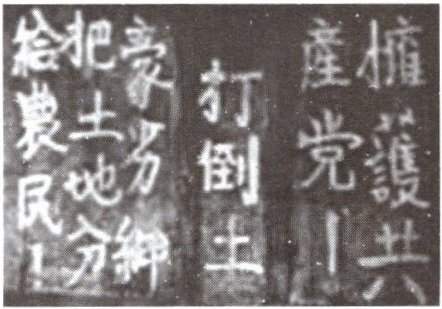 擁護共
產党！
打倒土
豪劣紳
把土地分
给農民！